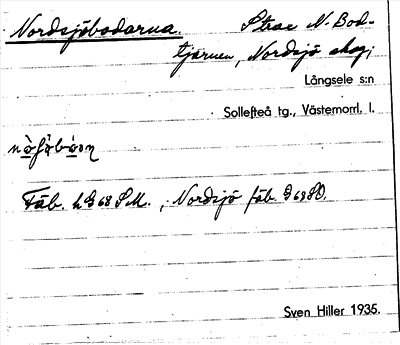 Nordsjöbodarna. Strax N. Bod-
tjärnen, Nordsjö skog,
Långsele s:n
Sollefteå tg., Västernorrl. l.
Fäb. h G 68 SM., Nordsjö fäb. G 68 SO.
Sven Hiller 1935.